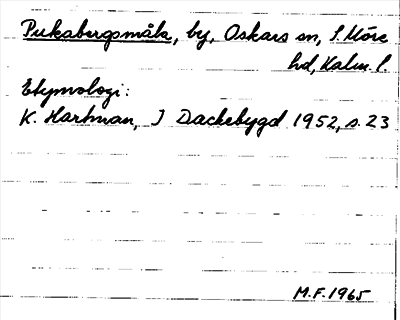 Pukabergsmåla, by, Oskars sn, S. Möre
hd, Kalm. l.
Etymologi:
K. Hartman, I Dackebygd 1952, s. 23
M.F. 1965